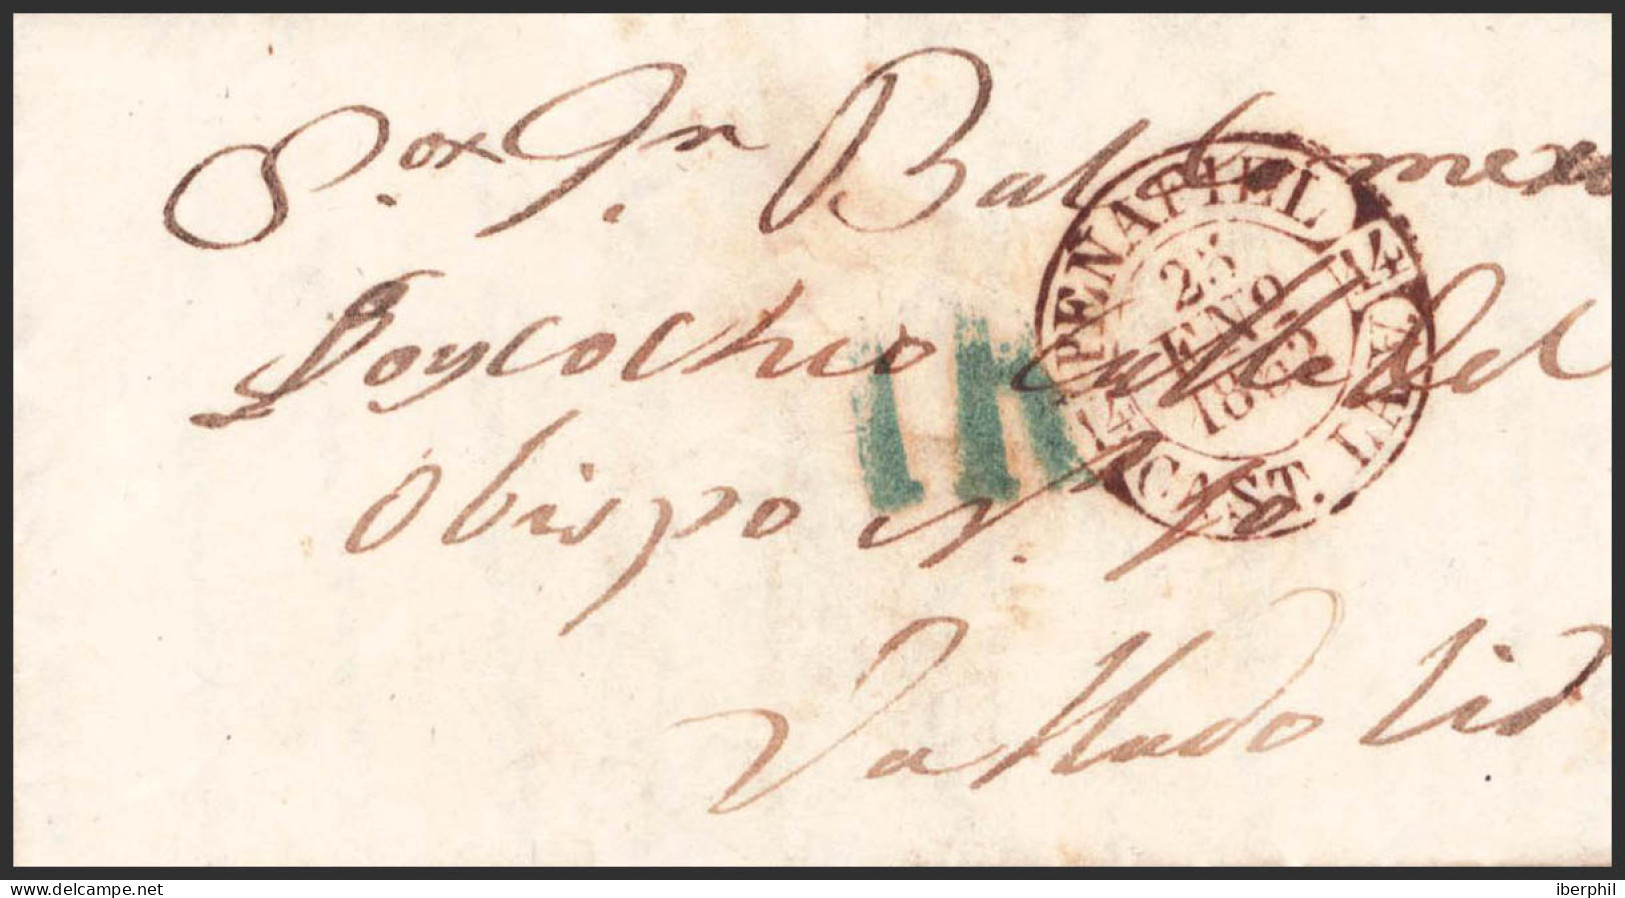 S.or Dn Baldomero
Goycochea Calle del
Obispo N. 10
Valladolid
1R
PEÑAFIEL
25
ENO
1853
14
14
CAST. LA V.
www.delcampe.net
iberphil